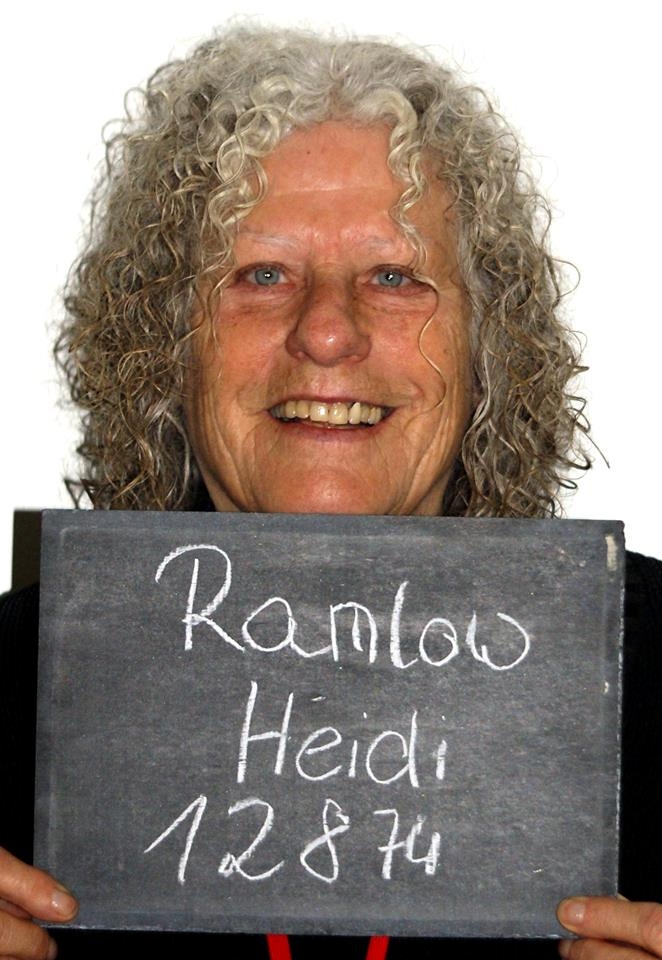 Ramlow
Heidi
12874